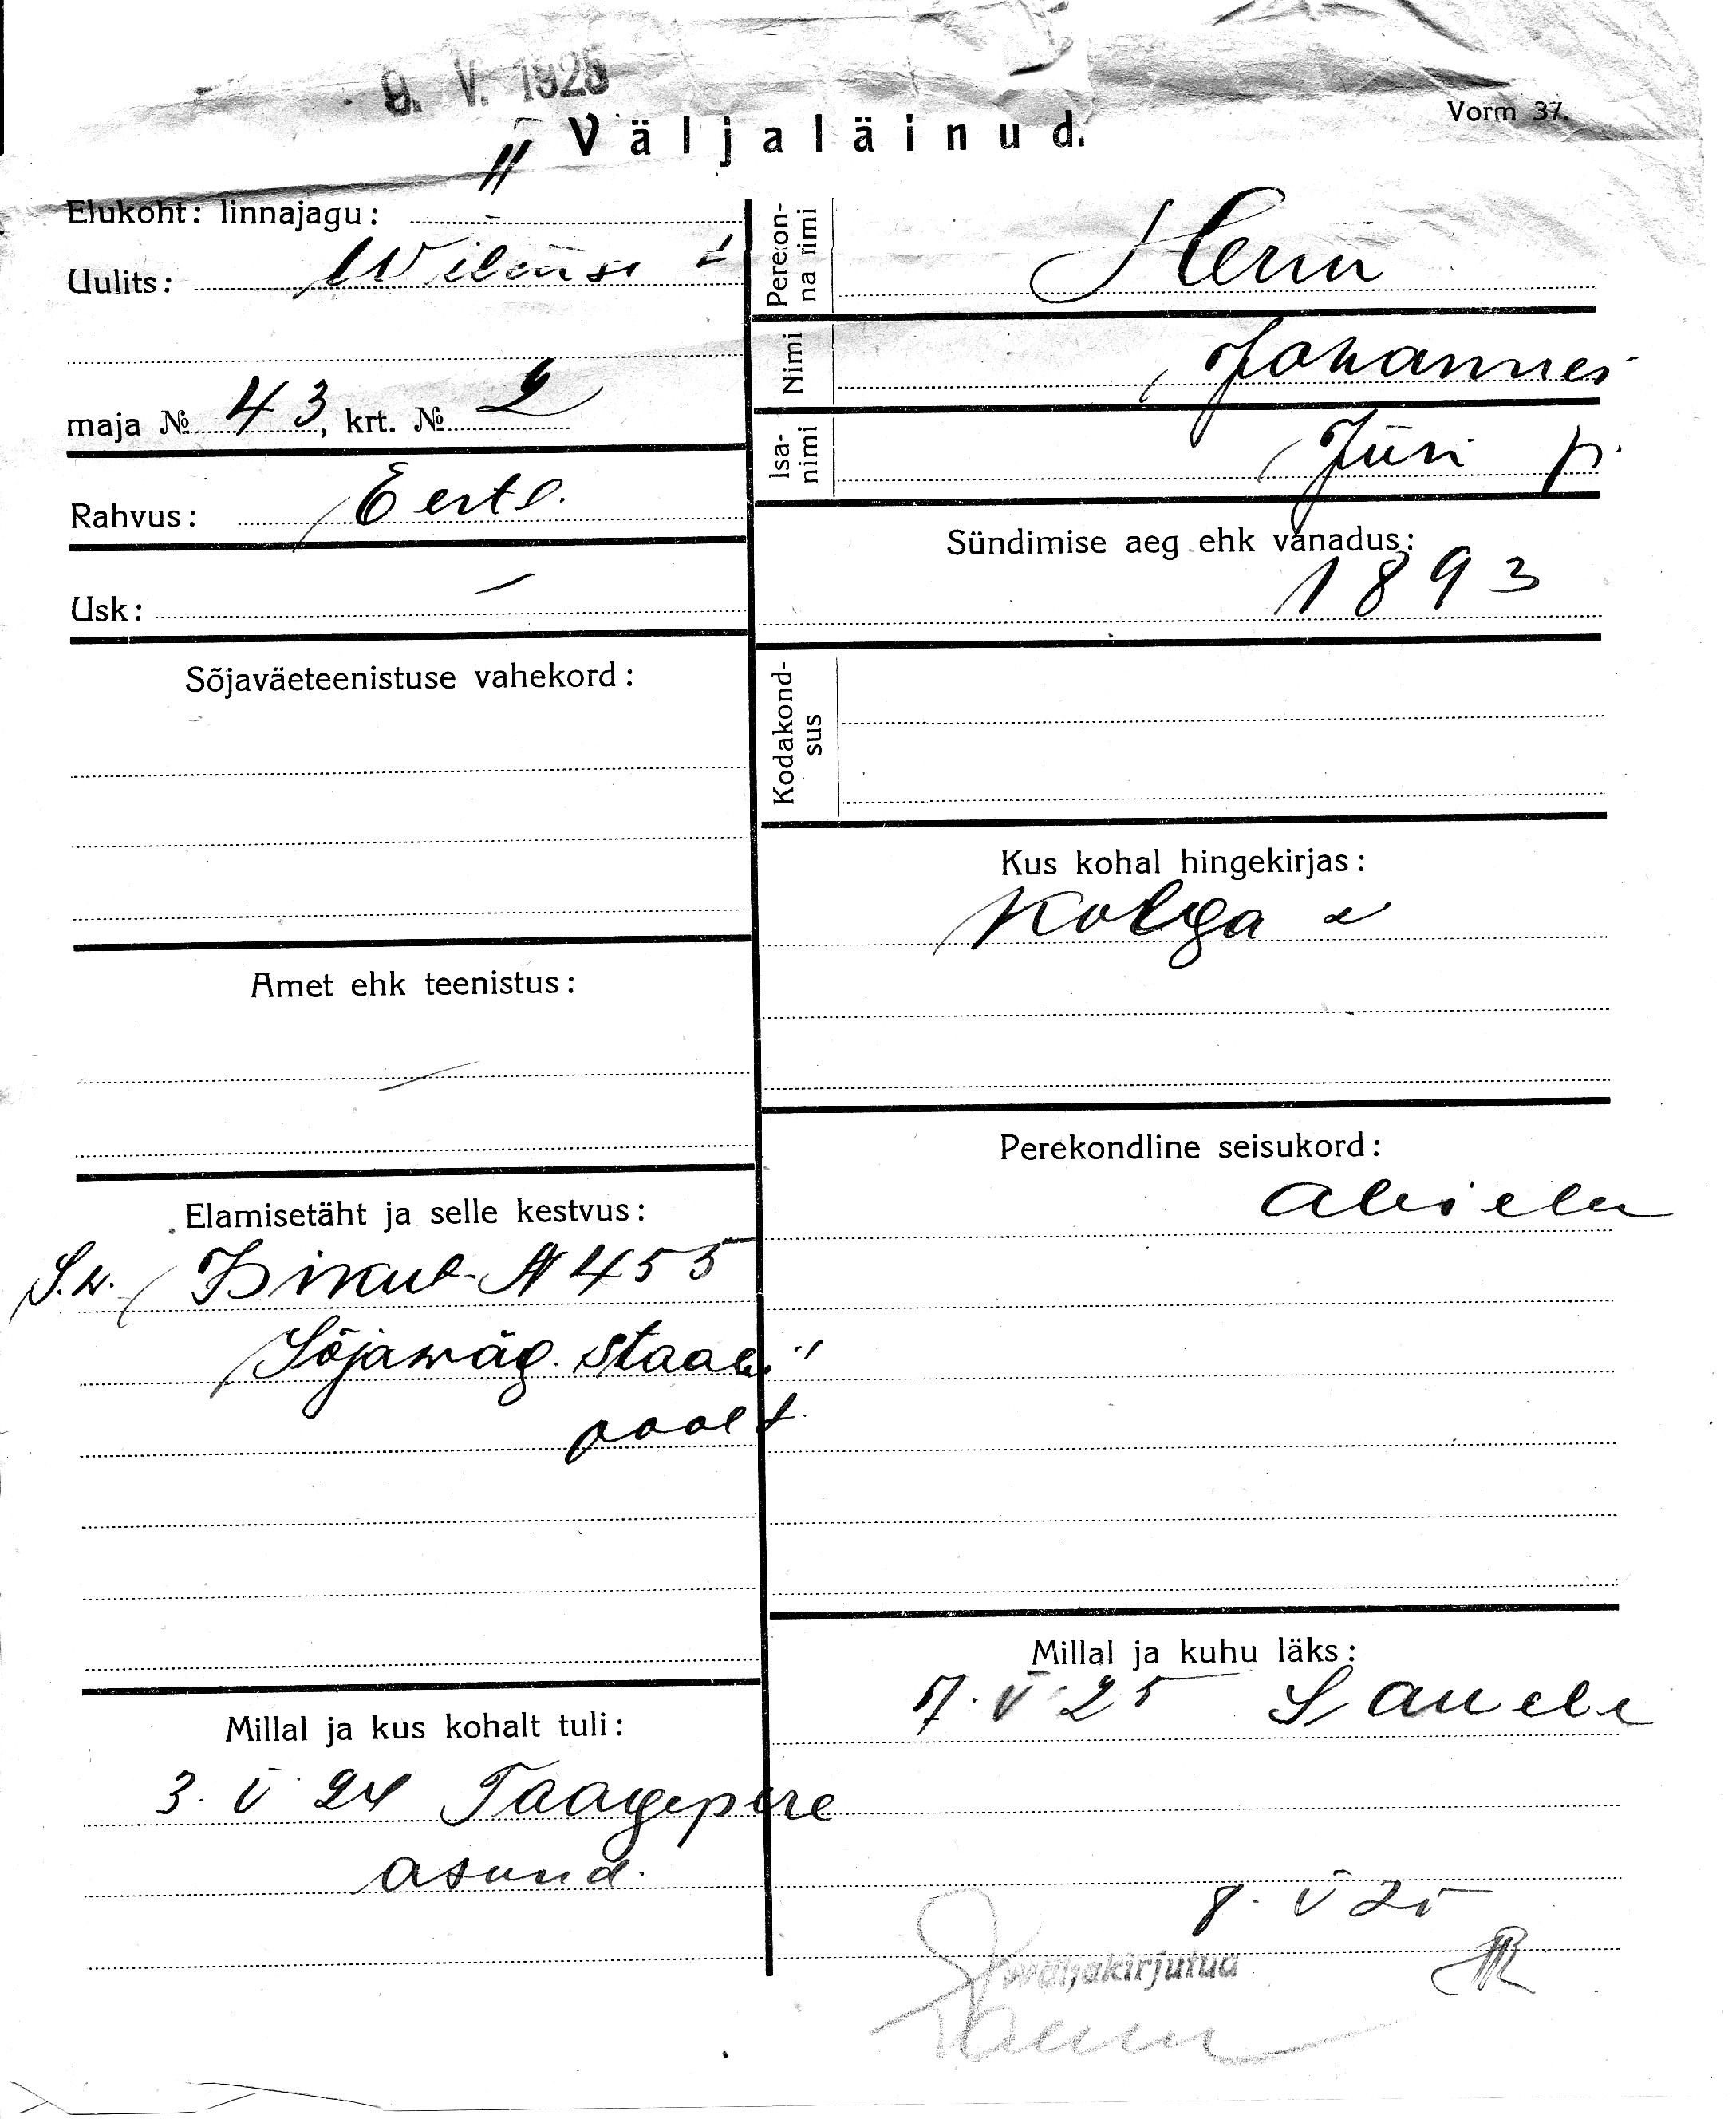 9. V. 1925
Vorm 37.
Väljaläinud.
Elukoht: linnajagu: II
Uulits: Wilmsi t
maja № 43, krt. № 2
Rahvus: Eestl.
Usk: —
Sõjaväeteenistuse vahekord:
Amet ehk teenistus:
—
Elamisetäht ja selle kestvus:
S.w. Isikut. N 455
Sõjawäg. staabi
poolt
Millal ja kus kohalt tuli:
3. V 24 Taagepere
asund.
Perekonna nimi
Nimi Johannes
Isanimi Jüri p.
Sündimise aeg ehk vanadus:
1893
Kodakondsus
Kus kohal hingekirjas:
Kolga v
Perekondline seisukord:
abielu
Millal ja kuhu läks:
7. V 25 Sauele
8. V 25
wäljakirjutud